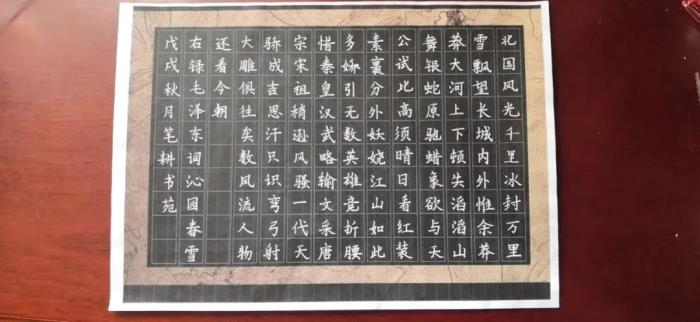 北国风光千里冰封万里
雪飘望长城内外惟余莽
莽大河上下顿失滔滔山
舞银蛇原驰蜡象欲与天
公试比高须晴日看红装
素裹分外妖娆江山如此
多娇引无数英雄竞折腰
惜秦皇汉武略输文采唐
宗宋祖稍逊风骚一代天
骄成吉思汗只识弯弓射
大雕俱往矣数风流人物
还看今朝
右録毛泽东词沁园春雪
戊戌秋月笔耕书苑